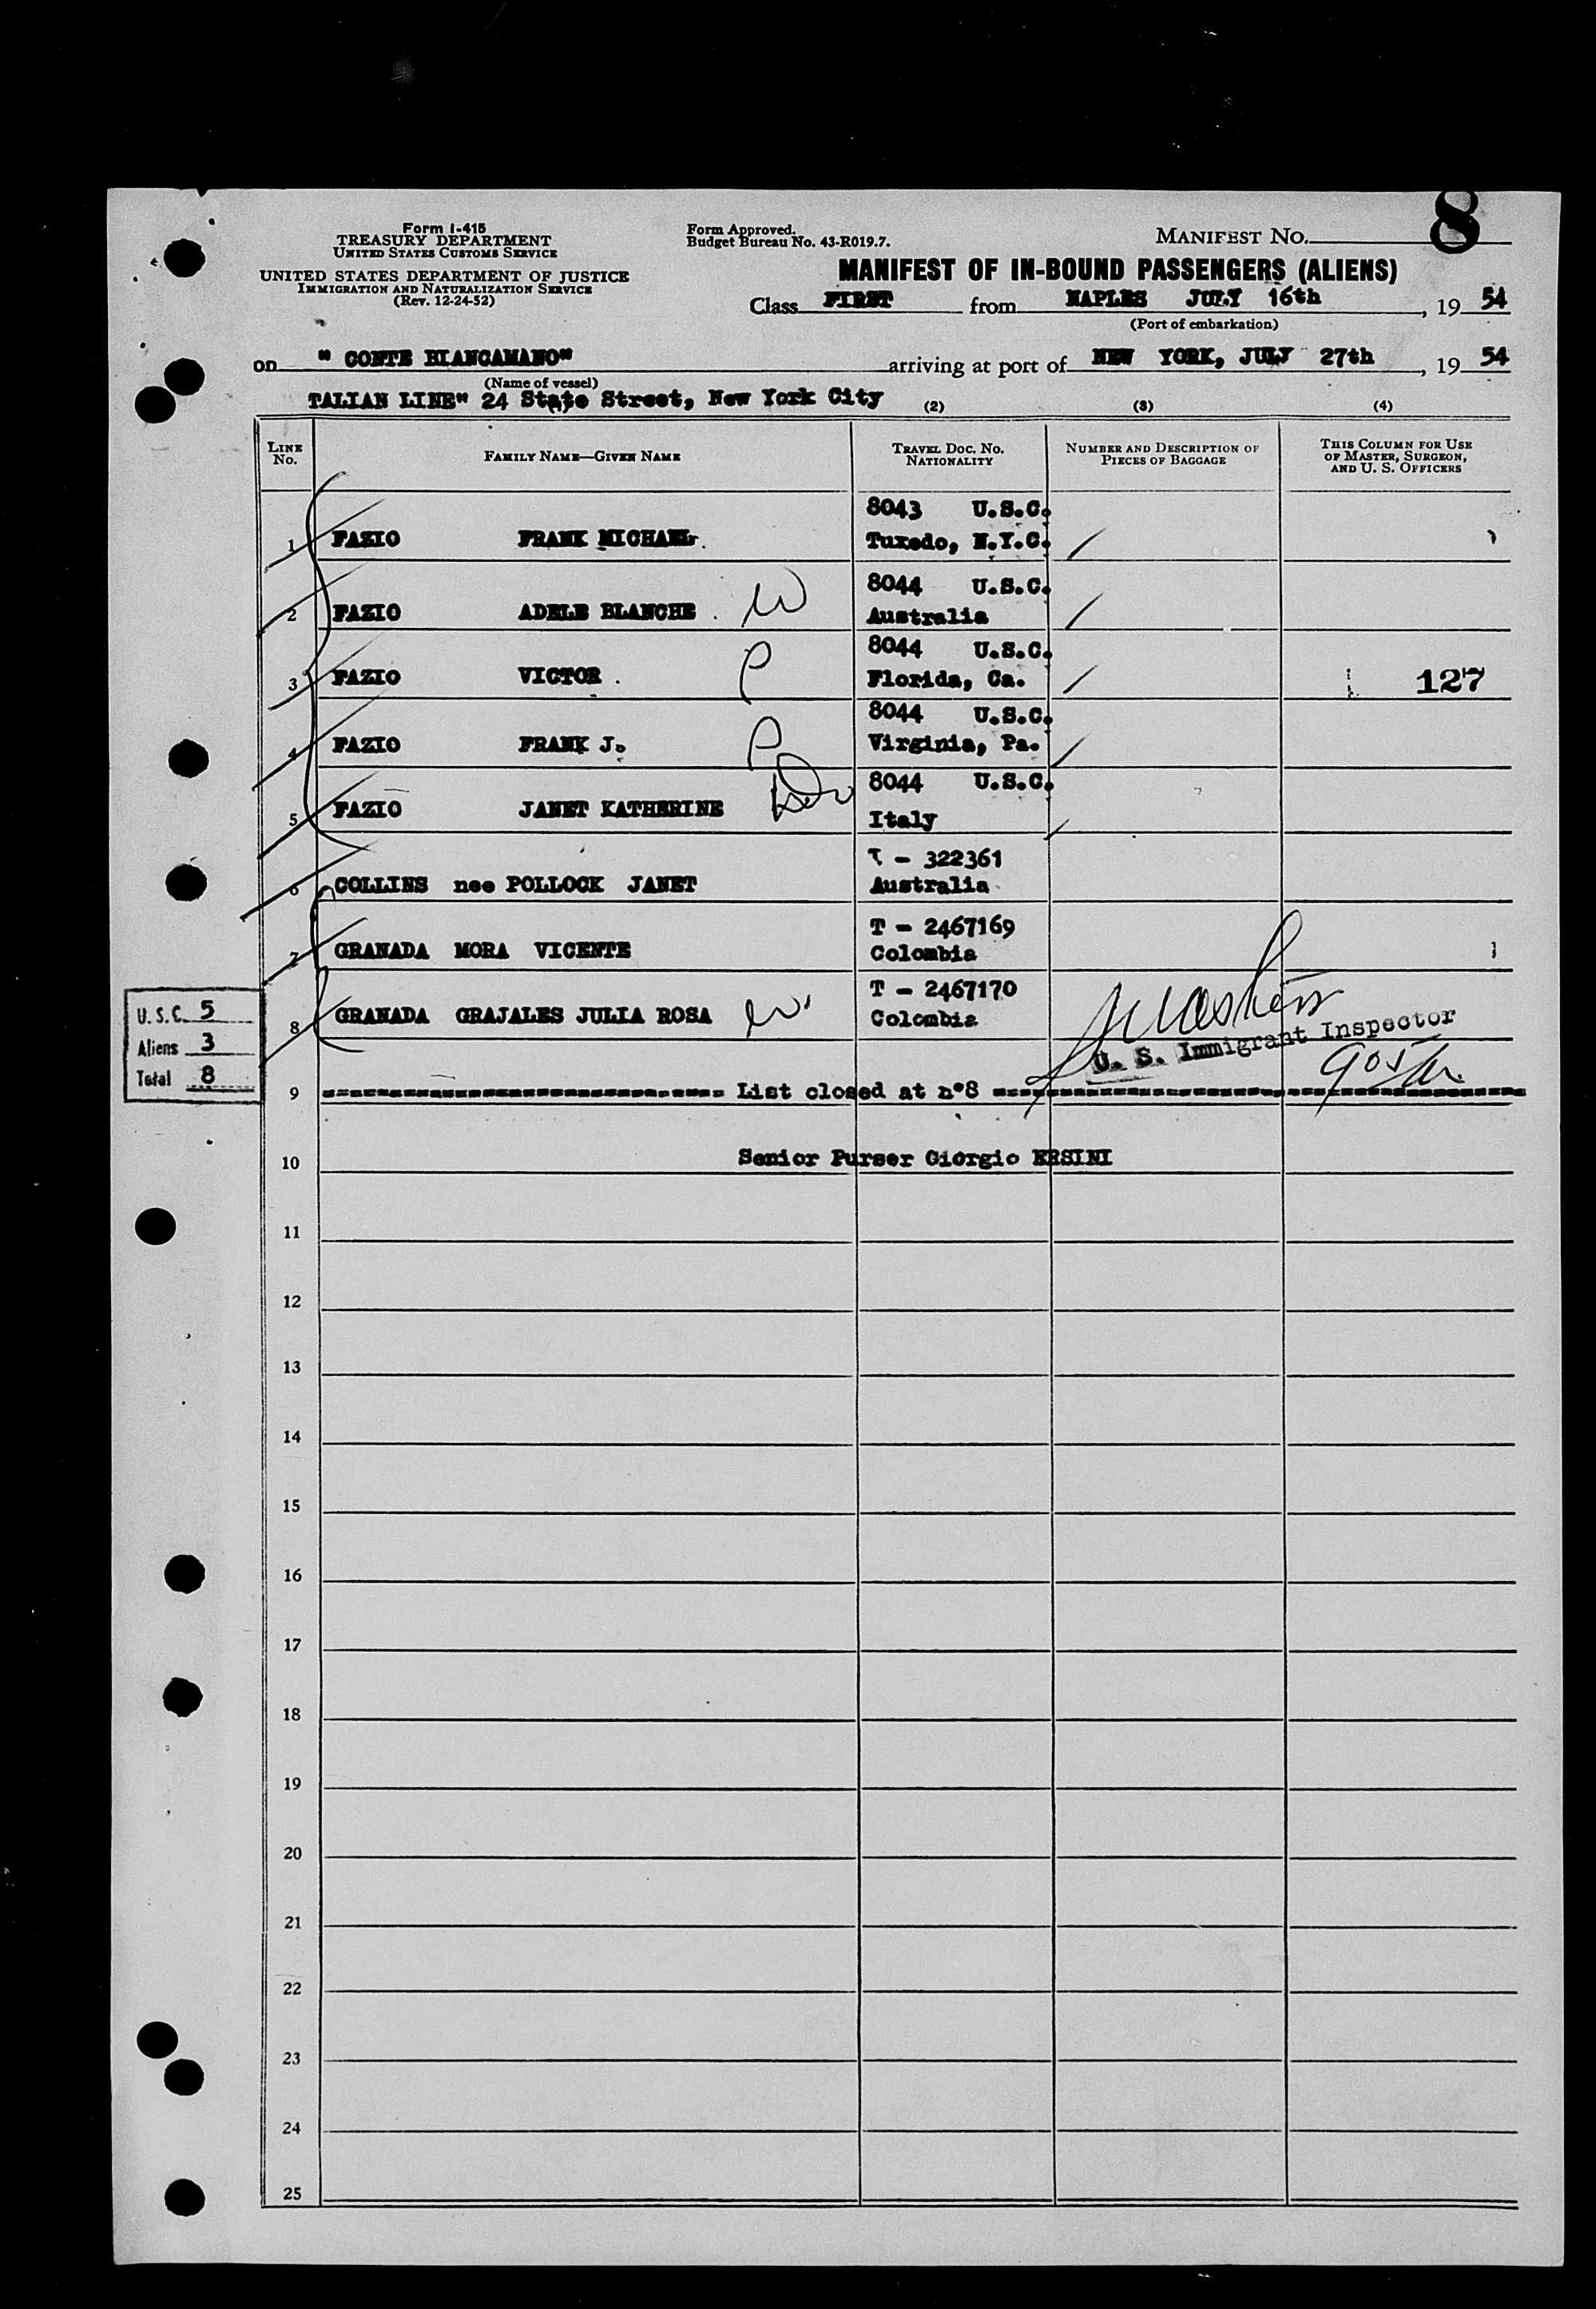 8
Form I-415
TREASURY DEPARTMENT
UNITED STATES CUSTOMS SERVICE
UNITED STATES DEPARTMENT OF JUSTICE
IMMIGRATION AND NATURALIZATION SERVICE
(Rev. 12-24-52)
Form Approved.
Budget Bureau No. 43-R019.7.
MANIFEST NO.
MANIFEST OF IN-BOUND PASSENGERS (ALIENS)
Class FIRST from NAPLES JULY 16th, 19 54
(Port of embarkation)
on " CONTE BIANCAMANO" arriving at port of NEW YORK, JULY 27th, 19 54
(Name of vessel)
TALIAN LINE" 24 State Street, New York City
(2) (3) (4)
LINE NO. FAMILY NAME—GIVEN NAME TRAVEL DOC. NO. NATIONALITY NUMBER AND DESCRIPTION OF PIECES OF BAGGAGE THIS COLUMN FOR USE OF MASTER, SURGEON, AND U. S. OFFICERS
8043 U.S.C.
1 FAZIO FRANK MICHAEL Tuxedo, N.Y.C.
8044 U.S.C.
2 FAZIO ADELE BLANCHE . W Australia
8044 U.S.C.
3 FAZIO VICTOR . P Florida, Ca. 127
8044 U.S.C.
4 FAZIO FRANK J. P Virginia, Pa.
8044 U.S.C.
5 FAZIO JANET KATHERINE Italy
T - 322361
6 COLLINS nee POLLOCK JANET Australia
T - 2467169
7 GRANADA MORA VICENTE Colombia
T - 2467170
8 GRANADA GRAJALES JULIA ROSA W Colombia
U.S.C. 5
Aliens 3
Total 8
U. S. Immigrant Inspector
9 List closed at n°8
10 Senior Purser Giorgio ERSINI
11
12
13
14
15
16
17
18
19
20
21
22
23
24
25